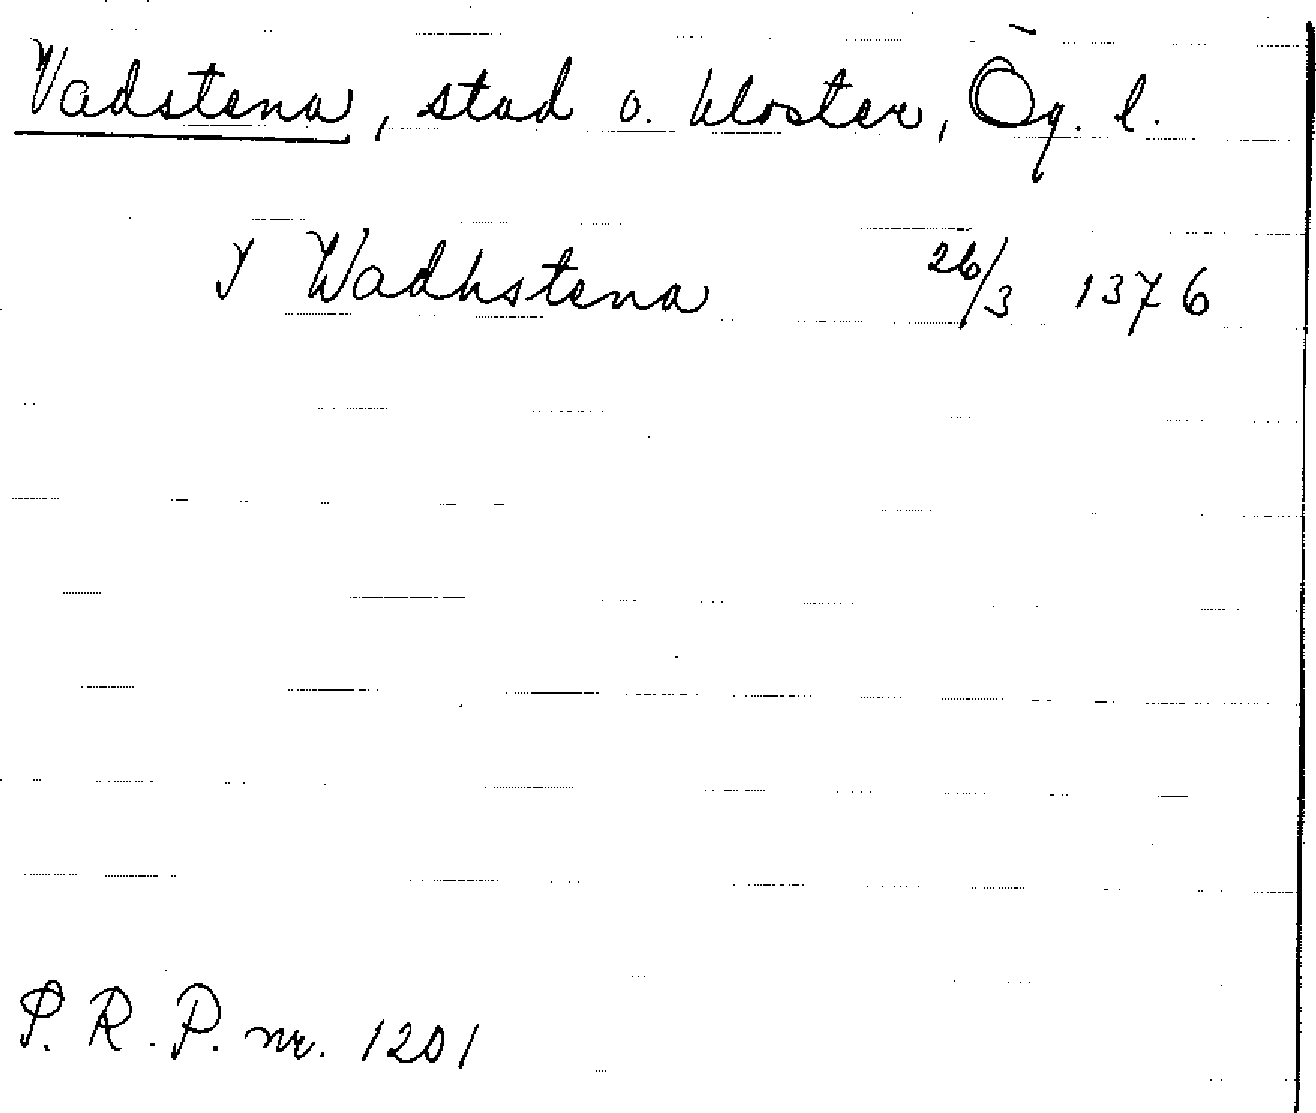 Vadstena, stad o. kloster, Ög. l.
J Wadhstena 26/3 1376
P. R. P. nr. 1201